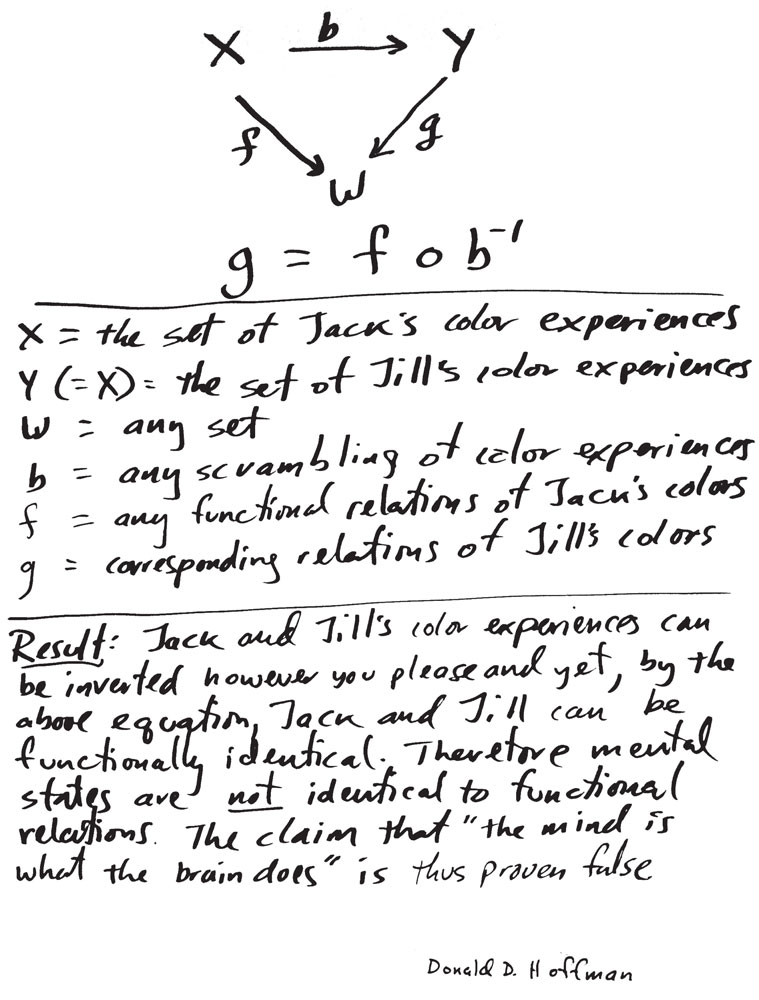 X b Y
f g
W
g = f o b⁻¹
X = the set of Jack's color experiences
Y (=X) = the set of Jill's color experiences
W = any set
b = any scrambling of color experiences
f = any functional relations of Jack's colors
g = corresponding relations of Jill's colors
Result: Jack and Jill's color experiences can
be inverted however you please and yet, by the
above equation, Jack and Jill can be
functionally identical. Therefore mental
states are not identical to functional
relations. The claim that "the mind is
what the brain does" is thus proven false
Donald D. Hoffman